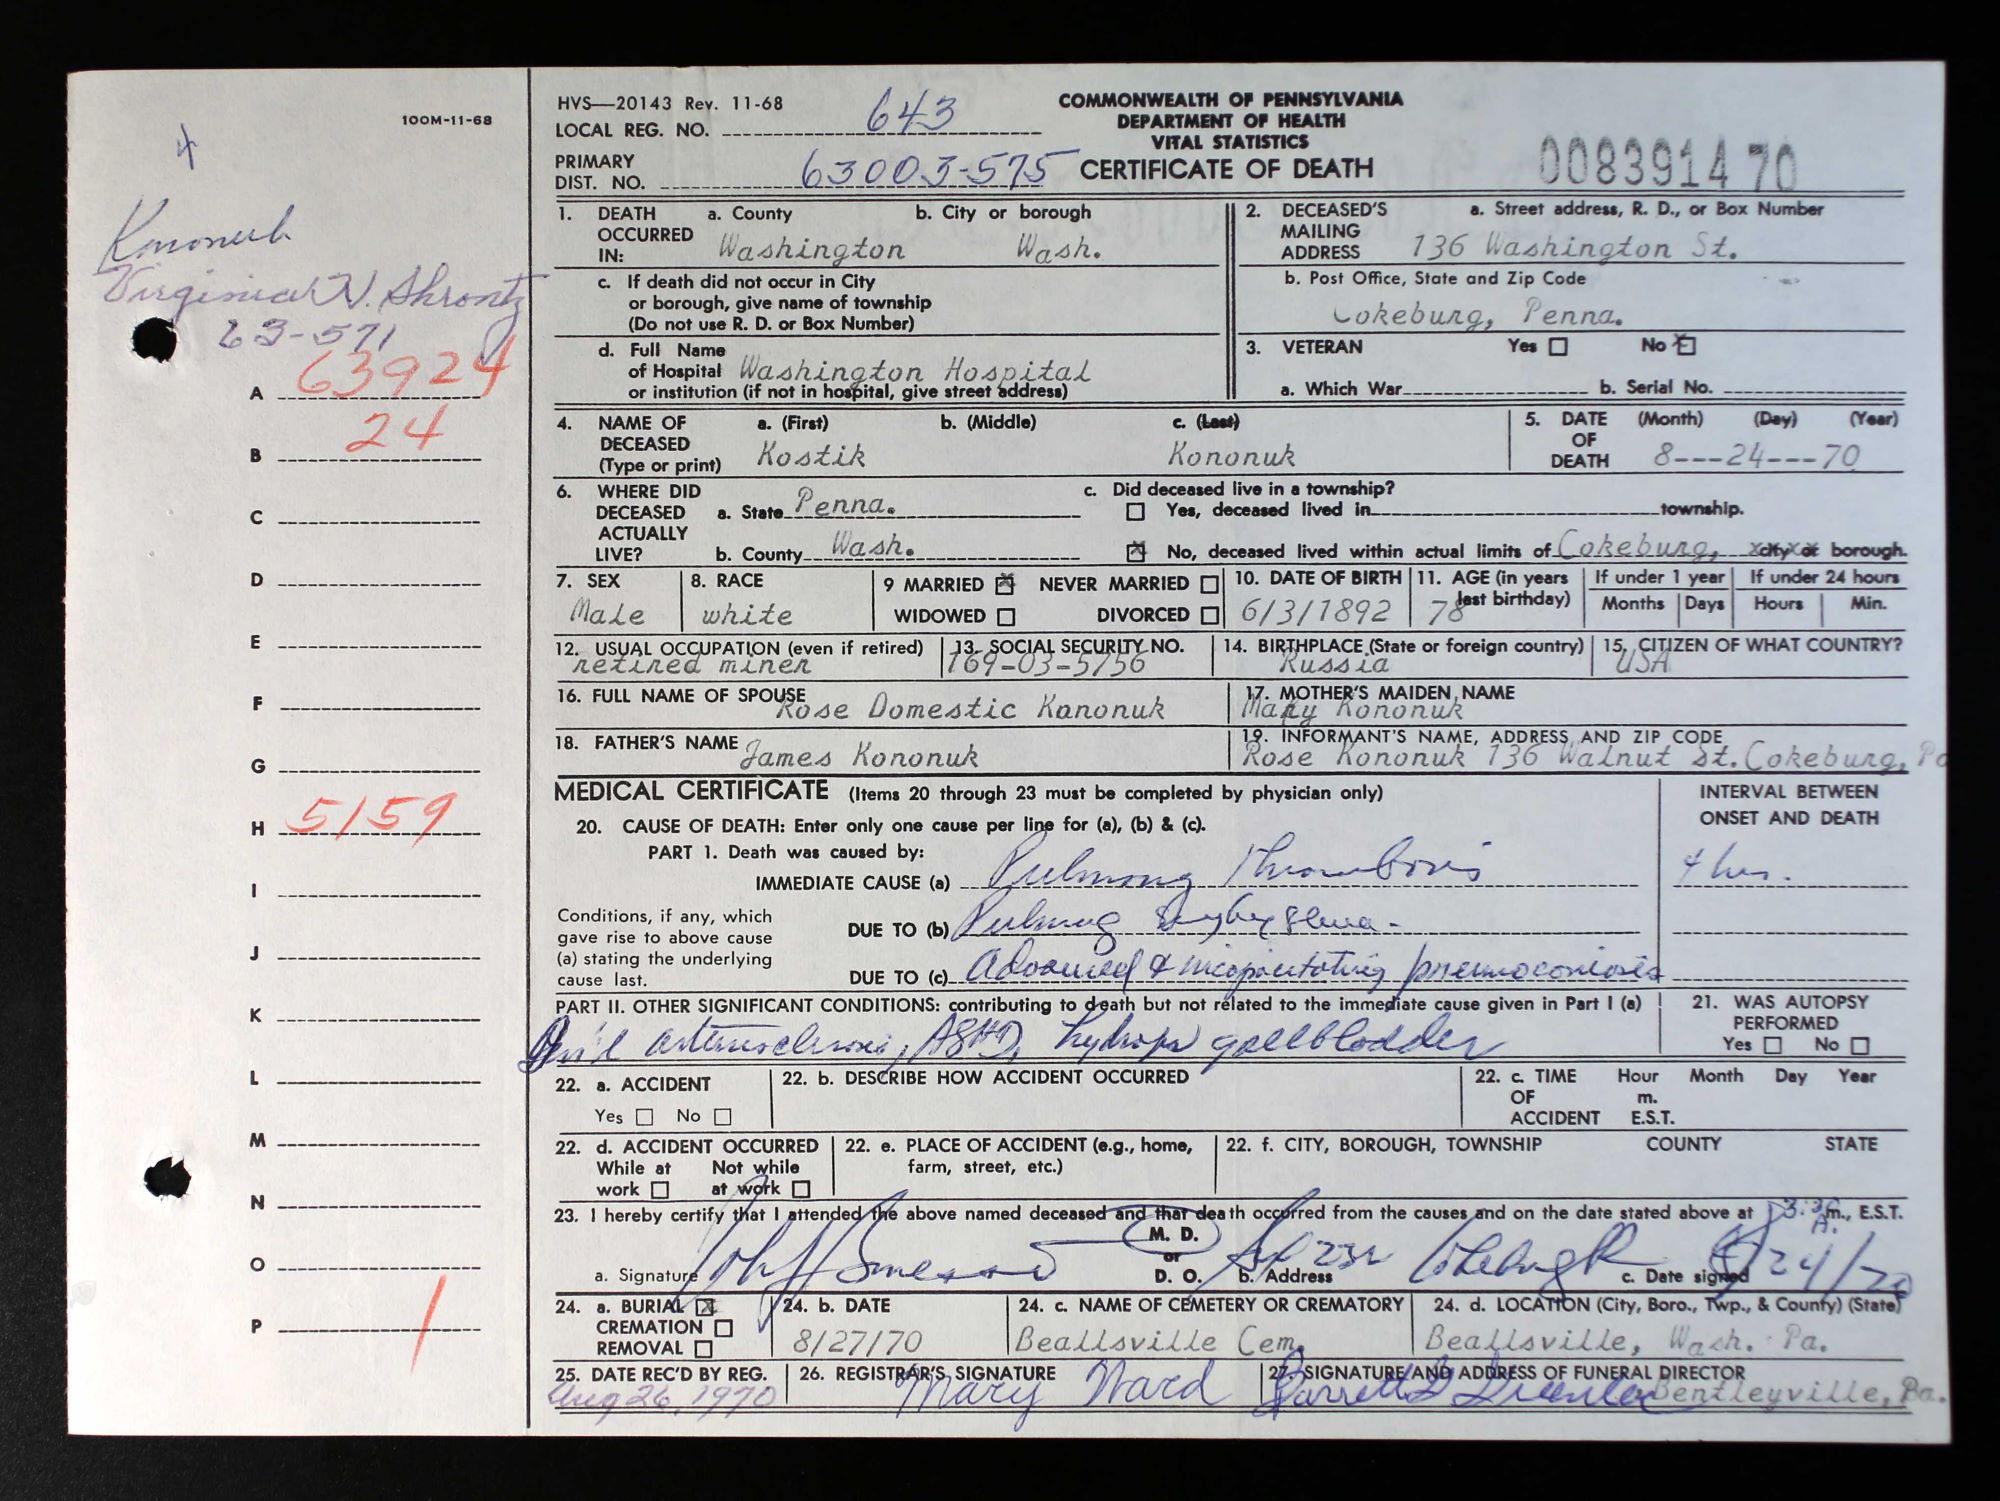 100M-11-68
Virginia N. Shrontz
63-571
A 63924
B 24
C
D
E
F
G
H 5159
I
J
K
L
M
N
O
P 1
HVS—20143 Rev. 11-68
LOCAL REG. NO. 643
PRIMARY DIST. NO. 63003-575
COMMONWEALTH OF PENNSYLVANIA
DEPARTMENT OF HEALTH
VITAL STATISTICS
CERTIFICATE OF DEATH
0083914 70
1. DEATH OCCURRED IN: a. County Washington b. City or borough Wash.
c. If death did not occur in City
or borough, give name of township
(Do not use R. D. or Box Number)
d. Full Name
of Hospital Washington Hospital
or institution (if not in hospital, give street address)
2. DECEASED'S MAILING ADDRESS a. Street address, R. D., or Box Number
136 Washington St.
b. Post Office, State and Zip Code
Cokeburg, Penna.
3. VETERAN Yes No X
a. Which War b. Serial No.
4. NAME OF DECEASED (Type or print) a. (First) b. (Middle) c. (Last)
Kostik Kononuk
5. DATE OF DEATH (Month) (Day) (Year)
8---24---70
6. WHERE DID DECEASED ACTUALLY LIVE? a. State Penna.
b. County Wash.
c. Did deceased live in a township?
Yes, deceased lived in township.
X No, deceased lived within actual limits of Cokeburg, city or borough.
7. SEX Male
8. RACE white
9 MARRIED X NEVER MARRIED
WIDOWED DIVORCED
10. DATE OF BIRTH 6/3/1892
11. AGE (in years last birthday) 78
If under 1 year Months Days
If under 24 hours Hours Min.
12. USUAL OCCUPATION (even if retired) retired miner
13. SOCIAL SECURITY NO. 169-03-5756
14. BIRTHPLACE (State or foreign country) Russia
15. CITIZEN OF WHAT COUNTRY? USA
16. FULL NAME OF SPOUSE Rose Domestic Kononuk
17. MOTHER'S MAIDEN NAME Mary Kononuk
18. FATHER'S NAME James Kononuk
19. INFORMANT'S NAME, ADDRESS, AND ZIP CODE
Rose Kononuk 136 Walnut St. Cokeburg, Pa
MEDICAL CERTIFICATE (Items 20 through 23 must be completed by physician only)
INTERVAL BETWEEN
ONSET AND DEATH
20. CAUSE OF DEATH: Enter only one cause per line for (a), (b) & (c).
PART 1. Death was caused by:
IMMEDIATE CAUSE (a) Pulmonary Thrombosis 4 hrs.
Conditions, if any, which
gave rise to above cause
(a) stating the underlying
cause last.
DUE TO (b) Pulmonary Emphysema
DUE TO (c) Advanced & incapacitating pneumoconiosis
PART II. OTHER SIGNIFICANT CONDITIONS: contributing to death but not related to the immediate cause given in Part I (a)
Gen'l arteriosclerosis, ASHD, hydrops gallbladder
21. WAS AUTOPSY
PERFORMED
Yes No
22. a. ACCIDENT
Yes No
22. b. DESCRIBE HOW ACCIDENT OCCURRED
22. c. TIME OF ACCIDENT Hour m. E.S.T. Month Day Year
22. d. ACCIDENT OCCURRED
While at work Not while at work
22. e. PLACE OF ACCIDENT (e.g., home,
farm, street, etc.)
22. f. CITY, BOROUGH, TOWNSHIP COUNTY STATE
23. I hereby certify that I attended the above named deceased and that death occurred from the causes and on the date stated above at m., E.S.T.
A.
a. Signature M. D. or D. O. b. Address c. Date signed 8/24/70
24. a. BURIAL X
CREMATION
REMOVAL
24. b. DATE
8/27/70
24. c. NAME OF CEMETERY OR CREMATORY
Beallsville Cem.
24. d. LOCATION (City, Boro., Twp., & County) (State)
Beallsville, Wash. Pa.
25. DATE REC'D BY REG.
Aug 26, 1970
26. REGISTRAR'S SIGNATURE
Mary Ward
27. SIGNATURE AND ADDRESS OF FUNERAL DIRECTOR
Bentleyville, Pa.